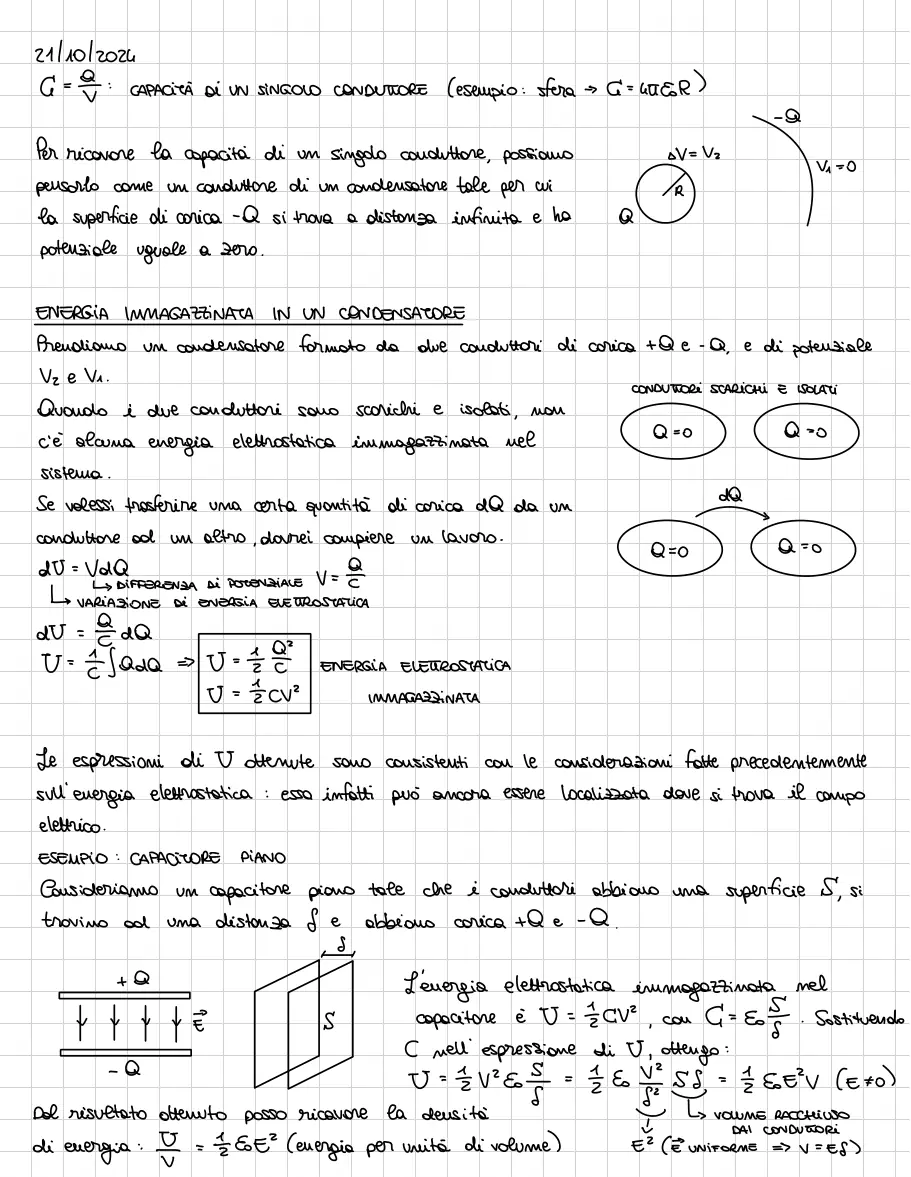 21/10/2024
C = Q/V : CAPACITÀ DI UN SINGOLO CONDUTTORE (esempio: sfera → C = 4πε₀R)
-Q
Per ricavare la capacità di un singolo conduttore, possiamo
ΔV = V₂
V₁ = 0
pensarlo come un conduttore di un condensatore tale per cui
R
la superficie di carica -Q si trova a distanza infinita e ha
Q
potenziale uguale a zero.
ENERGIA IMMAGAZZINATA IN UN CONDENSATORE
Prendiamo un condensatore formato da due conduttori di carica +Q e -Q, e di potenziale
V₂ e V₁.
CONDUTTORI SCARICHI E ISOLATI
Quando i due conduttori sono scarichi e isolati, non
Q = 0 Q = 0
c'è alcuna energia elettrostatica immagazzinata nel
sistema.
Se volessi trasferire una certa quantità di carica dQ da un
dQ
conduttore ad un altro, dovrei compiere un lavoro.
Q = 0 Q = 0
dU = VdQ
↳ DIFFERENZA DI POTENZIALE V = Q/C
↳ VARIAZIONE DI ENERGIA ELETTROSTATICA
dU = Q/C dQ
U = 1/C ∫QdQ ⇒ U = 1/2 Q²/C ENERGIA ELETTROSTATICA
U = 1/2 CV² IMMAGAZZINATA
Le espressioni di U ottenute sono consistenti con le considerazioni fatte precedentemente
sull'energia elettrostatica : essa infatti può ancora essere localizzata dove si trova il campo
elettrico.
ESEMPIO : CAPACITORE PIANO
Consideriamo un capacitore piano tale che i conduttori abbiano una superficie S, si
trovino ad una distanza δ e abbiano carica +Q e -Q.
+Q
E⃗
-Q
δ
S
L'energia elettrostatica immagazzinata nel
capacitore è U = 1/2 CV², con C = ε₀ S/δ. Sostituendo
C nell'espressione di U, ottengo:
U = 1/2 V² ε₀ S/δ = 1/2 ε₀ V²/δ² Sδ = 1/2 ε₀E²V (E≠0)
↳ VOLUME RACCHIUSO
DAI CONDUTTORI
E² (E⃗ UNIFORME ⇒ V = Eδ)
Dal risultato ottenuto posso ricavare la densità
di energia: U/V = 1/2 ε₀E² (energia per unità di volume)